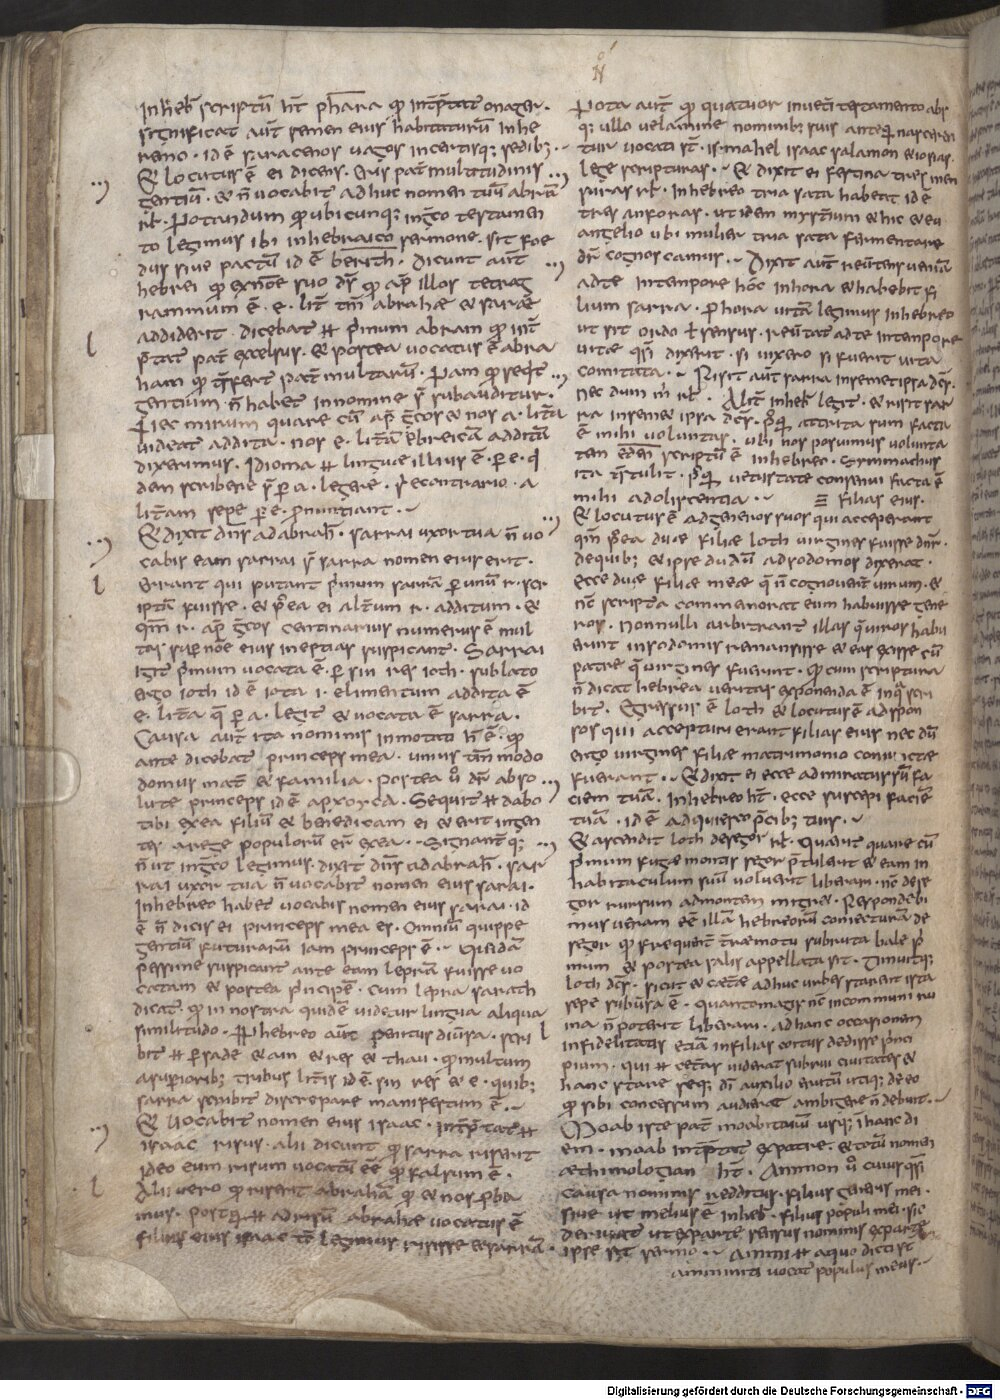 In hebr̃ scriptũ ht̃ phara qđ int̃ptat᷒ onager·
significat aut̃ semen eius habitaturũ in he
remo· id ẽ saracenos vagos incertisq; sedib;·
Et locutus ẽ ei dicens· Eris pat̃ multitudinis
gentiũ· & ñ vocabit᷒ adhuc nomen tuũ abrã
Notandum qđ ubicunq; in g̃co testamen
to legimus ibi in hebraico sermone sit foe
dus siue pactũ id ẽ berith· Dicunt aut̃
hebrei qđ ex nõe suo d̃s qđ ap̃ illos tetrag
rammum ẽ· e· lit̃ tm̃ abrahæ & saræ
addiderit· dicebat᷒ p̃mum abram qđ int̃
p̃tat᷒ pat̃ excelsus· & postea uocatus ẽ abra
ham qđ t̃sfert᷒ pat̃ multarũ· Nam qđ seq̃t᷒
gentium· ñ habet᷒ in nomine s; subauditur·
Nec mirum quare cũ ap̃ g̃cos & nos a· lit̃a
videat᷒ addita· nos e· lit̃ã hebreicã additã
dixerimus· Idioma linguæ illius ẽ· p̃ e· q̇
dem scribere s; p̃ a· legere· sic econtrario· a
lit̃am sepe p̃ e· p̃nuntiant·
Et dixit dñs ad abrah̃· sarrai uxor tua ñ uo
cabis eam sarrai s; sarra nomen eius erit·
Errant qui putant p̃mum sarrã p̃ unũ r· scr
iptã fuisse· & p̃ea ei alt̃um r· additum· &
qm̃ r· ap̃ g̃cos centinarius numerus ẽ mul
tas sup̃ nõe eius ineptias suspicant᷒· Sarrai
igit᷒ p̃mum uocata ẽ· p̃ sin res ioth· sublato
ergo ioth id ẽ iota i· elimentum addita ẽ
e· lit̃a q̃ p̃ a· legit᷒ & uocata ẽ sarra·
Causa aut̃ ita nominis inmotato h̃ ẽ· qđ
ante dicebat᷒ princeps mea· unius tm̃modo
domus mat̃ & familiæ· postea ũ dr̃ abso
lute princeps id ẽ apxoyca· Sequit᷒ dabo
tibi ex ea filiũ & benedicam ei & erit in gen
tes & reges populorũ er̃ ex ea· Signant̃q;
ñ ut in g̃co legimus· dixit dñs ad abrah̃· sar
rai uxor tua ñ vocabit᷒ nomen eius sarai·
In hebreo habet᷒ vocabis nomen eius sarai· id
ẽ ñ dicis ei princeps mea es· Omniũ quippe
gentiũ futurarũ iam princeps ẽ· Quidã
pessime suspicant᷒ ante eam leprã fuisse uo
catam & postea p̃ncipẽ· cum lepra sarath
dicat᷒· qđ in nostra quidẽ videtur lingua aliqua
similitudo· hebreo aut̃ penitus diũsa· scri
bit᷒ p̃ sade & ain & res & thau· qđ multum
a sup̃iorib; tribus lit̃is id ẽ· sin res & e· quib;
sarra scribit᷒ discrepare manifestum ẽ·
Et vocabit᷒ nomen eius isaac· int̃ptat᷒
isaac risus· alii dicunt qđ sarra riserit
ideo eum risum vocatũ eẽ qđ falsum ẽ·
Alii vero qđ riserit abrahã qđ & nos p̃ba
mus· postq̃ ad risũ abrahæ vocatus ẽ
filius eius isaac tc̃ legimus risisse & sarrã·
Nota aut̃ qđ quatuor in ueti testamento abs
q; ullo velamine nominib; suis anteq̃ nasceren
tur vocati st̃· ismahel isaac salamon & iosias·
lege scripturas· Et dixit ei festina tres men
suras rł· In hebreo tria sata habent᷒ id ẽ
tres anforas· ut idem myst̃ium & hic & eu
angelio ubi mulier tria sata fermentare
dr̃ cognoscamus· Dixit aut̃ reut̃ens ueniã
ad te in tempore hoc in hora & habebit fi
lium sarra· p̃ hora uitã legimus in hebreo
ut sit ordo ł sensus· reut̃ar ad te in tempore
vitæ q̃si dixerit· si uixero si fuerit uita
comitata· Risit aut̃ sarra in semetipsa dc̃s·
nec dum m̃ rł· Alit̃ in hebr̃ legit᷒· & risit sar
ra in semetipsa dc̃s· p̃q̃ attrita sum facta
ẽ mihi voluntas· ubi nos posuimus volunta
tem edem scriptũ ẽ in hebreo· Symmachus
ita t̃stulit· p̃q̃ vetustate consenui facta ẽ
mihi adoliscentia· filias eius·
Et locutus ẽ ad generos suos qui acceperant
qm̃ p̃ea duæ filiæ loth uirgines fuisse dnr̃·
de quib; & ipse dudũ ad sodomos dixerat·
ecce duæ filiæ meæ q̃ ñ cognouert̃ uirum· &
nc̃ scriptura commemorat eum habuisse gene
ros· Nonnulli arbitrant᷒ illas q̃ uiros habu
erunt in sodomis remansisse & eas exisse cũ
patre q̃ uirgines fuerunt· qđ cum scriptura
ñ dicat hebrea veritas exponenda ẽ in q̃ scri
bit᷒· Egressus ẽ loth & locutus ẽ ad spon
sos qui accepturi erant filias eius nec dũ
ergo uirgines filiæ matrimonio coniunctæ
fuerant· Et dixit ei ecce admiratus sũ fa
ciem tuã· In hebreo ht̃· ecce suscepi faciẽ
tuã· id ẽ adquiesco p̃cib; tuis·
Et ascendit loth de segor rł· Querit᷒ quare cũ
p̃mum fugæ montis segor p̃tulerit & eam in
habitaculum suũ voluerit liberari· nc̃ de se
gor rursum ad montem migret· Respondebi
mus veram eẽ illã hebreorũ coniecturam de
segor qđ frequent̃ t̃ræmotu subruta bale p̃
mum & postea salis appellata sit· Timuitq;
loth dc̃s· sicut & ceteræ adhuc urbes starent ista
sepe subũsa ẽ· quantomagis nc̃ in communi ru
ina ñ poterit liberari· ad hanc occasionem
infidelitatis etiã in filias coitus dedisse p̃nci
pium· qui cet̃as viderat subrui ciuitates &
hanc stare seq; dī auxilio erutũ utiq; de eo
qđ sibi concessum audierat ambigere ñ debuit·
Moab iste pat̃ moabitarũ usq; in hanc di
em· moab int̃ptat᷒ ex patre· & totũ nomen
æthimologian ht̃· Ammon ũ cuius q̃si
causa nominis redditur· filius generis mei·
siue ut melius ẽ in hebr̃· filius populi mei· sic
deriuat᷒ ut ex parte sensus nominis ex parte
ipse sit sermo· Ammi a quo dicti st̃
ammanitæ vocat᷒ populus meus·